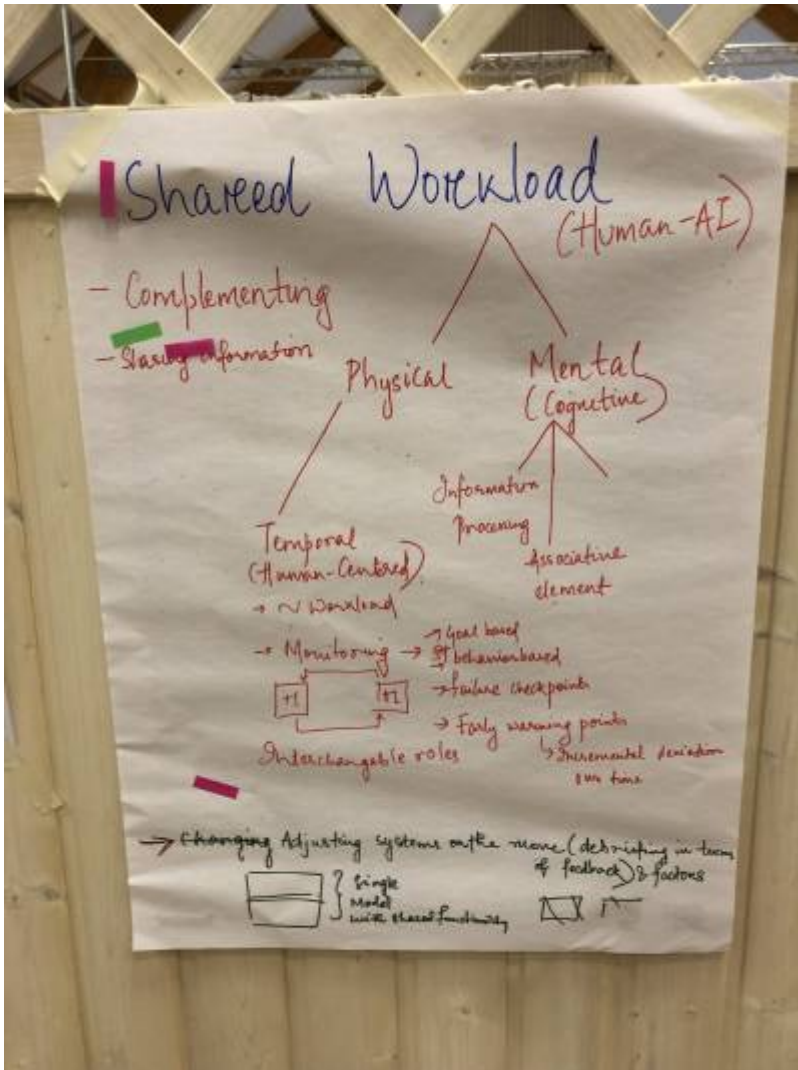 Shared Workload
(Human-AI)
- Complementing
- Sharing information
Physical
Mental
(Cognetive)
Information
Processing
Associative
element
Temporal
(Human-Centred)
→ ~ Workload
→ Monitoring → → Goal based
→ behaviorbased
→ failure checkpoints
→ Early warning points
↳ Incremental deviation
over time
+1
+1
Interchangable roles
→ Changing Adjusting systems on the move (debriefing in terms
of feedback) & factors
Single
Model
with shared functionality